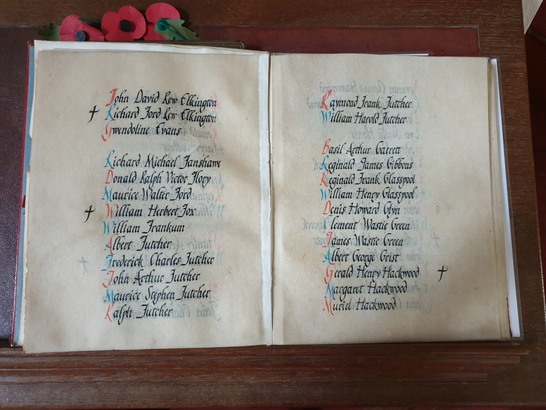 John David Rew Elkington
† Richard Ford Rew Elkington
Gwendoline Evans
Richard Michael Fanshawe
Donald Ralph Victor Flory
Maurice Walter Ford
† William Herbert Fox
William Frankum
Albert Futcher
Frederick Charles Futcher
John Arthur Futcher
Maurice Stephen Futcher
Ralph Futcher
Raymond Frank Futcher
William Harold Futcher
Basil Arthur Garrett
Reginald James Gibbons
Reginald Frank Glasspool
William Henry Glasspool
Denis Howard Glyn
Clement Wastie Green
James Wastie Green
Albert George Grist
Gerald Henry Hackwood †
Margaret Hackwood
Muriel Hackwood